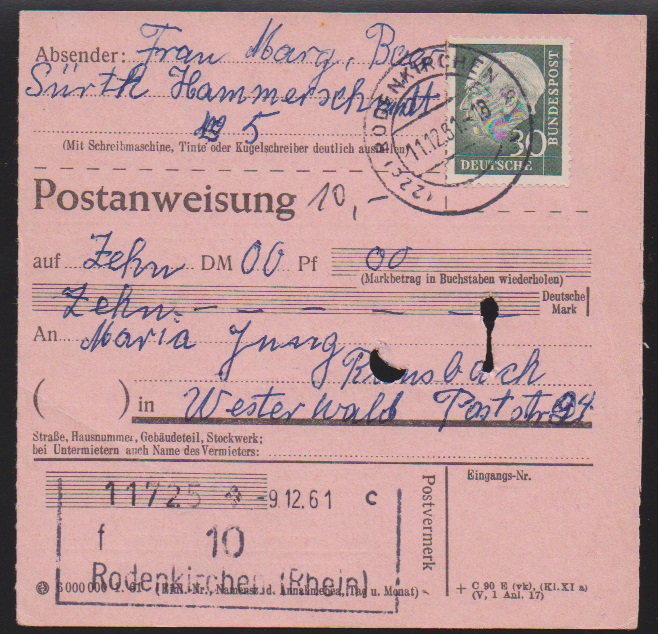 Absender: Frau Marg. 
Sürth Hammerschmidt
5
(Mit Schreibmaschine, Tinte oder Kugelschreiber deutlich ausfüllen)
(22c) RODENKIRCHEN
11.12.61
30
DEUTSCHE
BUNDESPOST
Postanweisung 10,-
auf Zehn DM 00 Pf 00
(Markbetrag in Buchstaben wiederholen)
Zehn - - - - - - Deutsche Mark
An Maria Jung
Ransbach
( ) in Westerwald Poststr. 24
Straße, Hausnummer, Gebäudeteil, Stockwerk;
bei Untermietern auch Name des Vermieters:
11725 -9.12.61 c
f 10
Rodenkirchen (Rhein)
Postvermerk
Eingangs-Nr.
6 000 000 1. 61 (Einl.-Nr., Namensz. d. Annahmebeh., Tag u. Monat)
+ C 90 E (vk), (Kl. XI a)
(V, 1 Anl. 17)